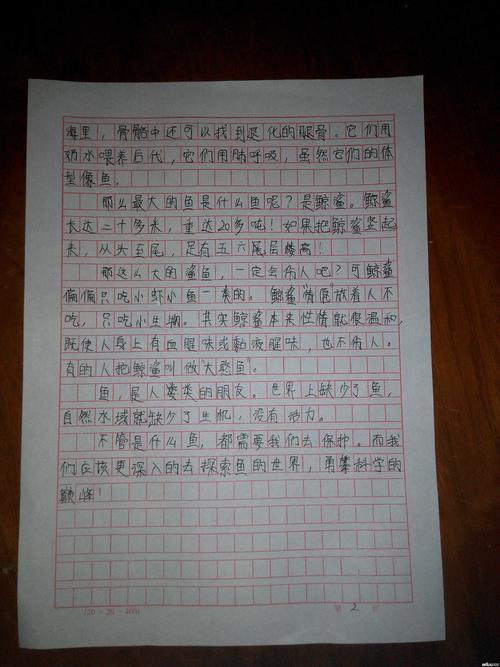 海里，骨骼中还可以找到退化的腿骨。它们用
奶水喂养后代，它们用肺呼吸，虽然它们的体
型像鱼。
那么最大的鱼是什么鱼呢？是鲸鲨。鲸鲨
长达二十多米，重达20多吨！如果把鲸鲨竖起
来，从头至尾，足有五六尾层楼高！
那这么大的鲨鱼，一定会伤人吧？可鲸鲨
偏偏只吃小虾小鱼一类的。鲸鲨"情愿"放着人不
吃，只吃小生物。其实鲸鲨本来性情就很温和，
既使人身上有血腥味或黏液腥味，也不伤人。
有的人把鲸鲨叫做"大憨鱼"。
鱼，是人类类的朋友。世界上缺少了鱼，
自然水域就缺少了生机，没有活力。
不管是什么鱼，都需要我们去保护。而我
们应该更深入的去探索鱼的世界，勇攀科学的
巅峰！
(20×20=400)
第 2 页